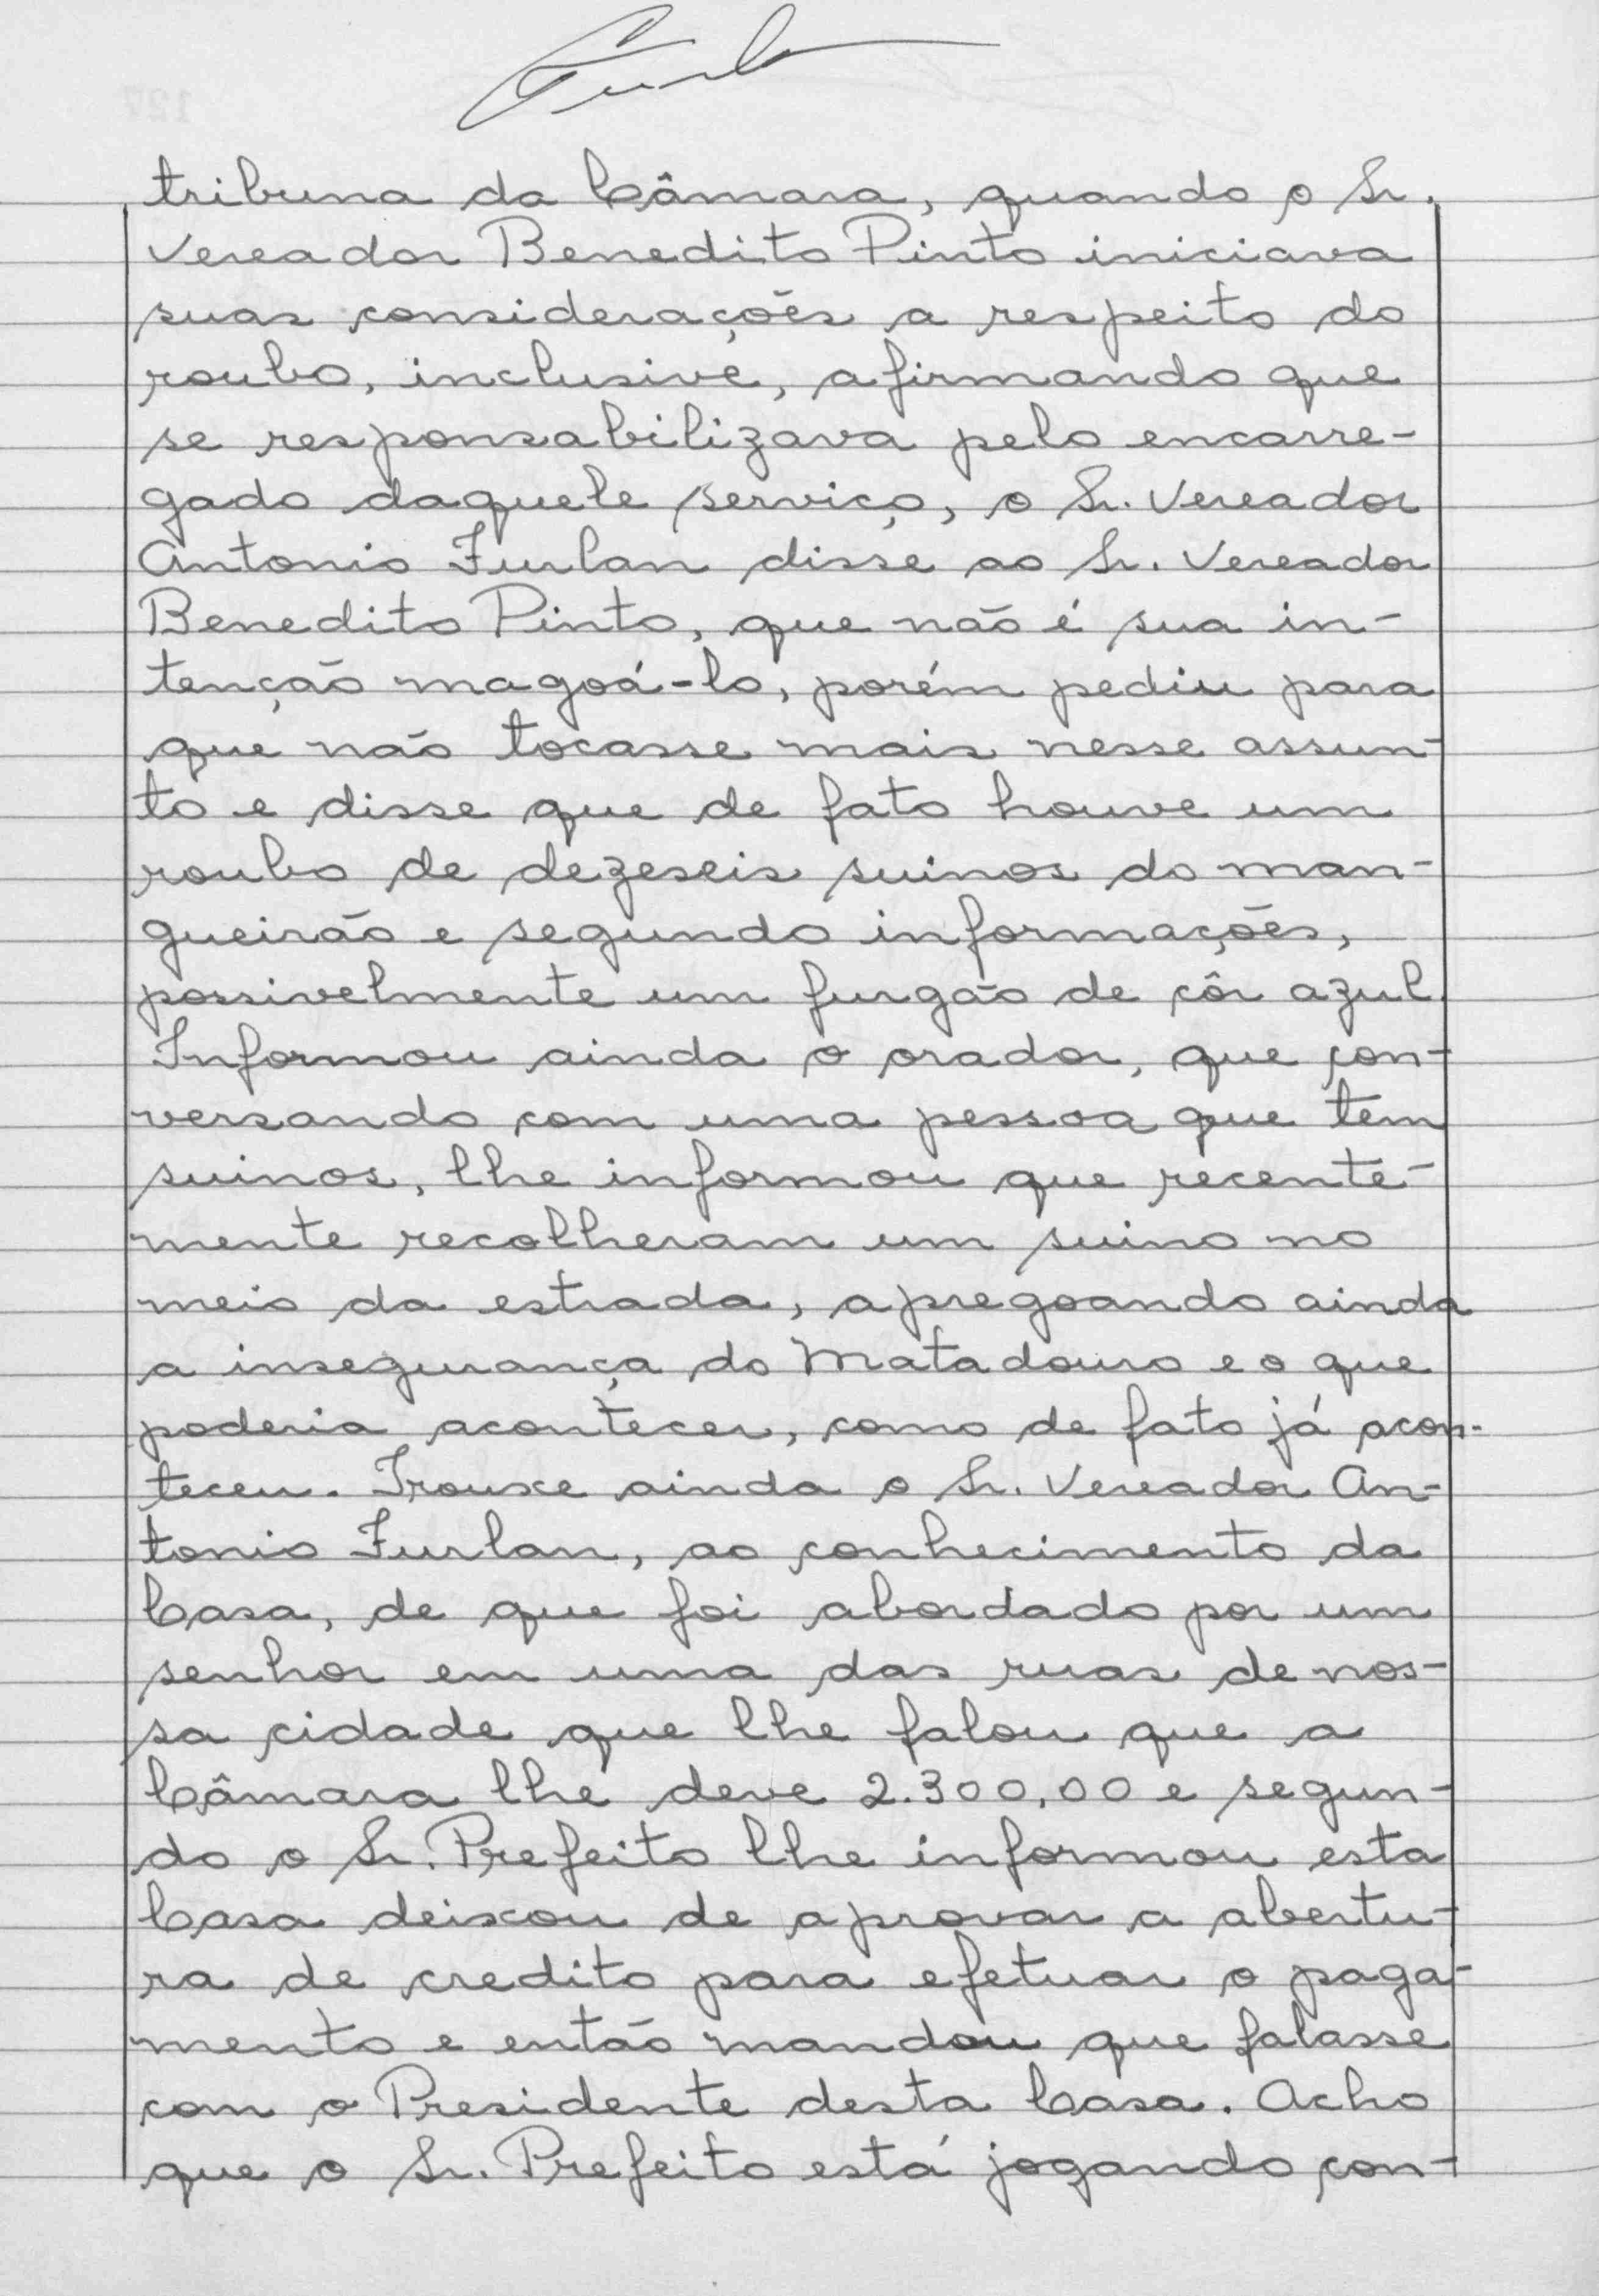 tribuna da Câmara, quando o Sr.
Vereador Benedito Pinto iniciava
suas considerações a respeito do
roubo, inclusive, afirmando que
se responsabilizava pelo encarre-
gado daquele serviço, o Sr. Vereador
Antonio Furlan disse ao Sr. Vereador
Benedito Pinto, que não é sua in-
tenção magoá-lo, porém pediu para
que não tocasse mais nesse assun-
to e disse que de fato houve um
roubo de dezeseis suinos do man-
gueirão e segundo informações,
possivelmente um furgão de côr azul.
Informou ainda o orador, que con-
versando com uma pessoa que tem
suinos, lhe informou que recente-
mente recolheram um suino no
meio da estrada, apregoando ainda
a insegurança do Matadouro e o que
poderia acontecer, como de fato já acon-
teceu. Trouxe ainda o Sr. Vereador An-
tonio Furlan, ao conhecimento da
Casa, de que foi abordado por um
senhor em uma das ruas de nos-
sa cidade que lhe falou que a
Câmara lhe deve 2.300,00 e segun-
do o Sr. Prefeito lhe informou esta
Casa deixou de aprovar a abertu-
ra de credito para efetuar o paga-
mento e então mandou que falasse
com o Presidente desta Casa. Acho
que o Sr. Prefeito está jogando con-